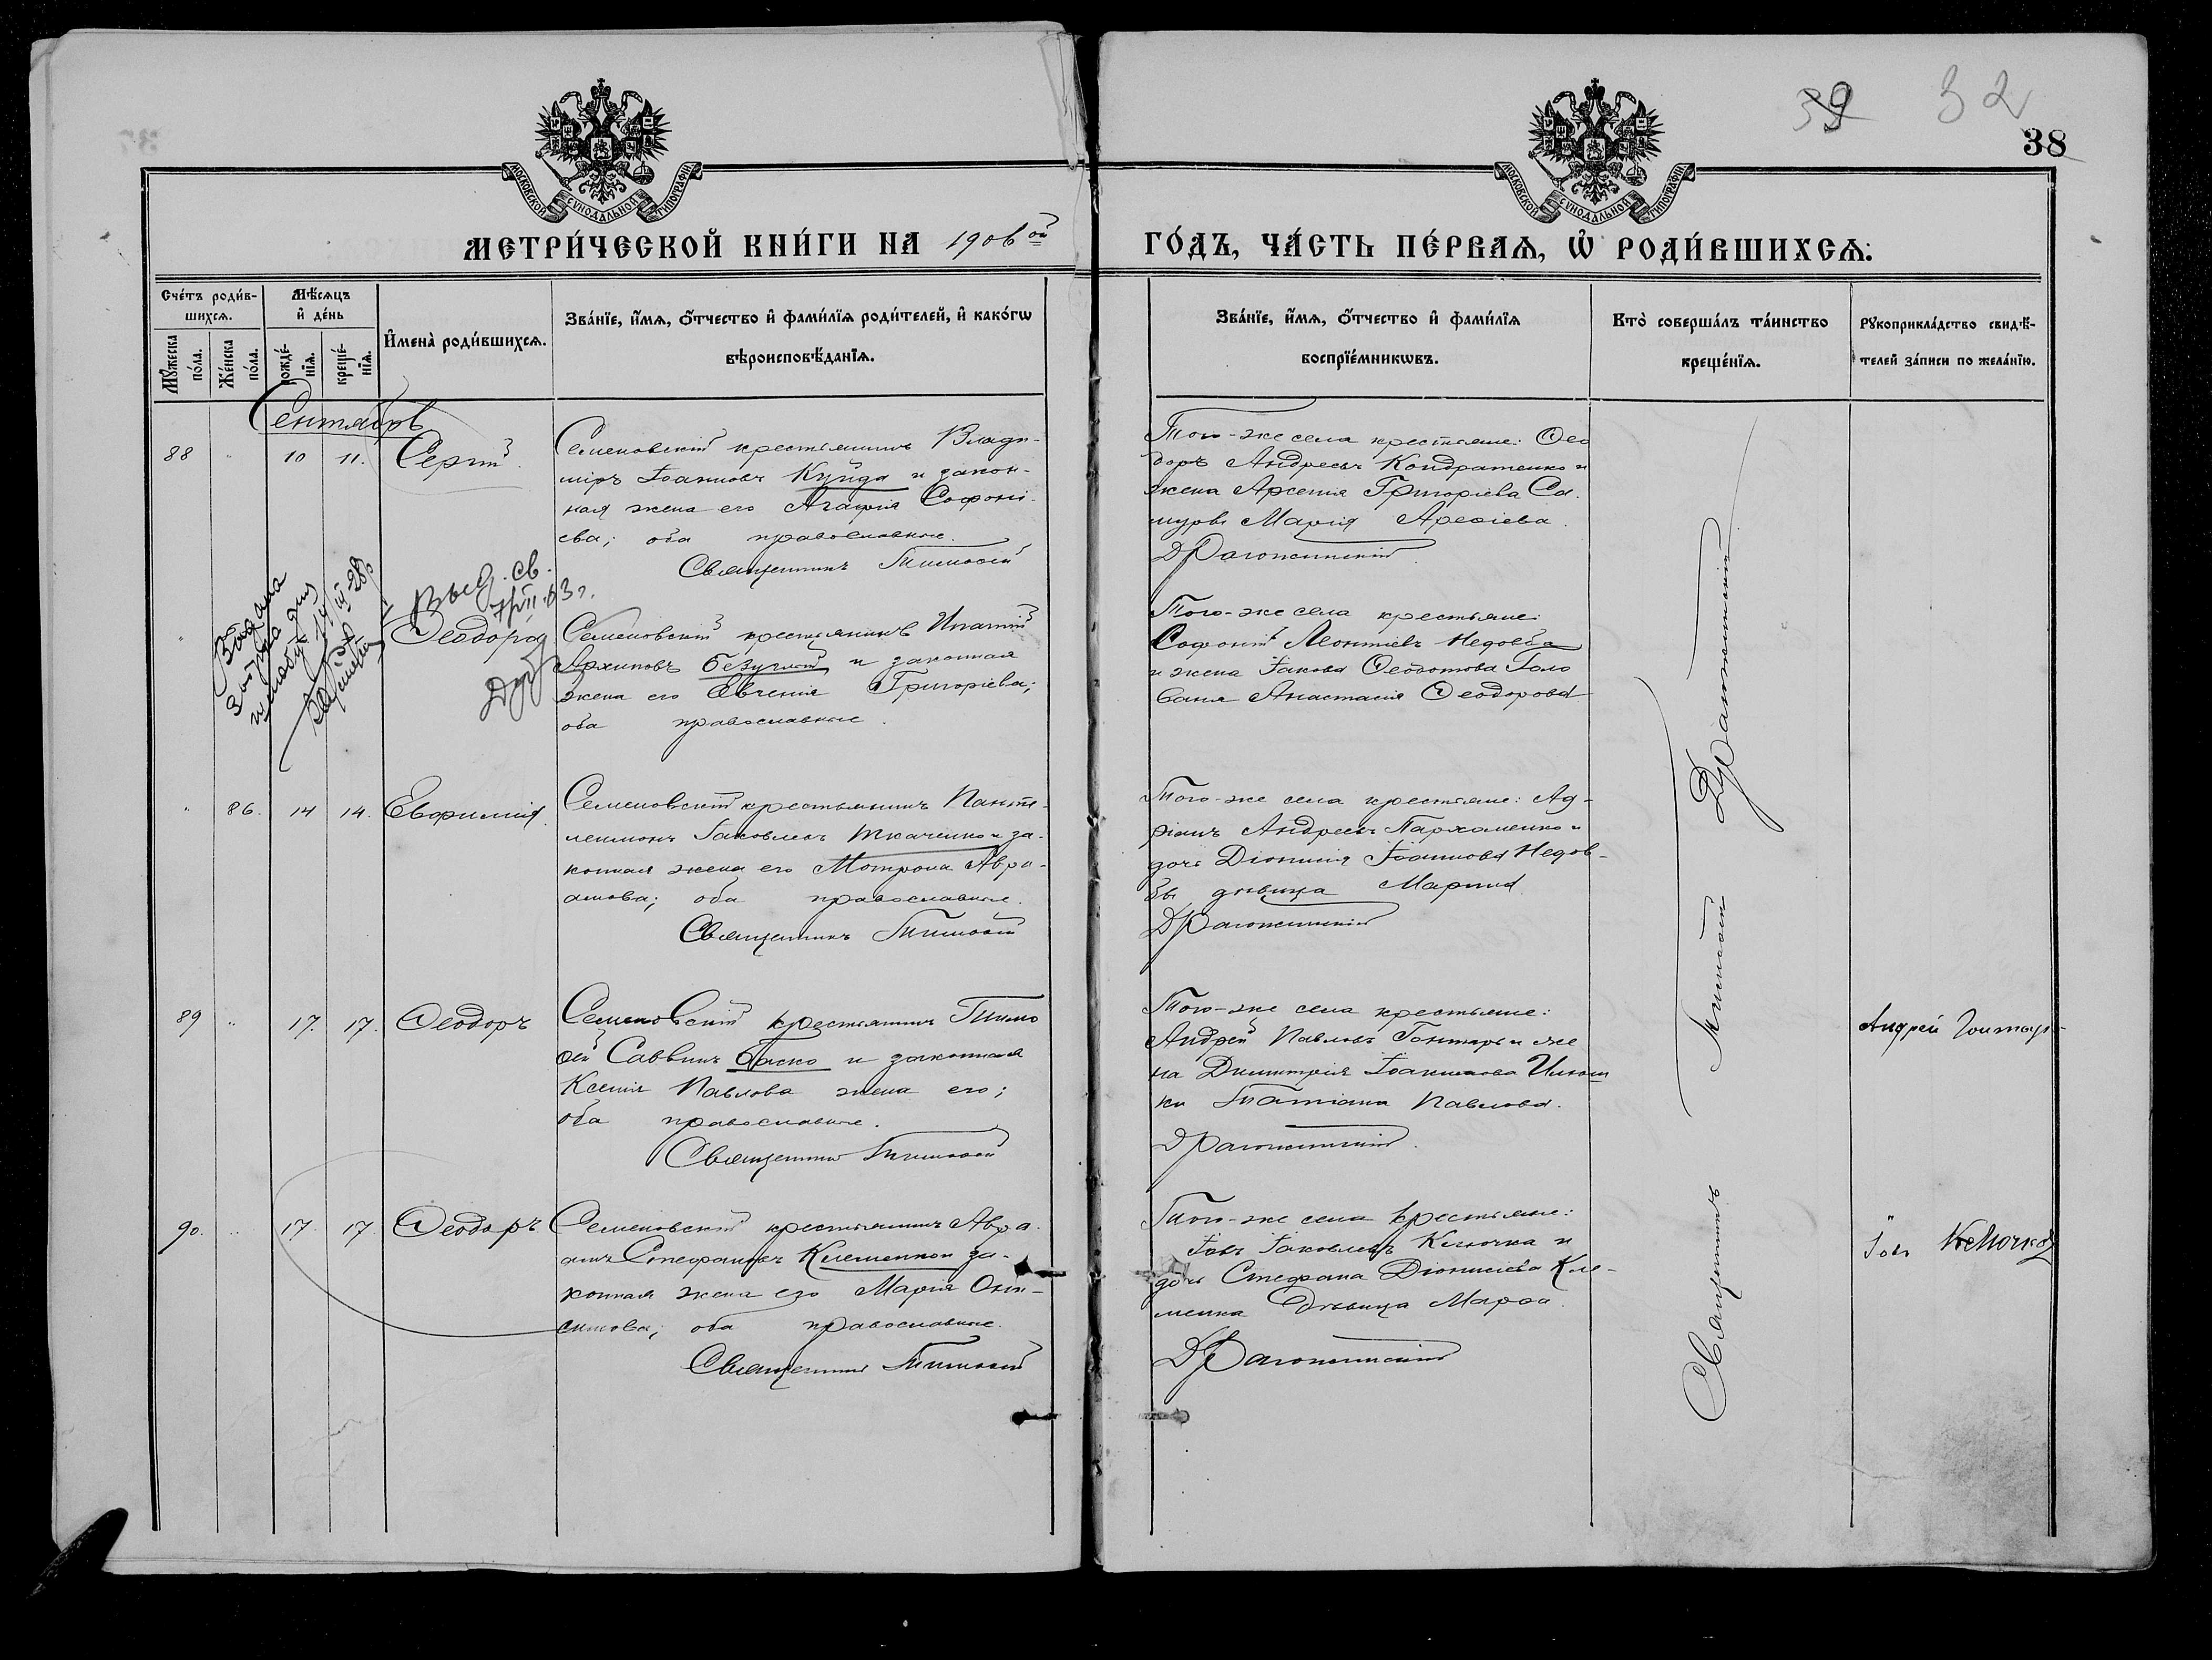 39 32
38
МОСКОВСКОЙ СѴНОДАЛЬНОЙ ТИПОГРАФІИ
МОСКОВСКОЙ СѴНОДАЛЬНОЙ ТИПОГРАФІИ
МЕТРИ́ЧЕСКОЙ КНИ́ГИ НА 1906 ой ГО́ДЪ, ЧА́СТЬ ПЕ́РВАѦ, Ѡ҆ РОДИ́ВШИХСѦ:
Сче́тъ роди́в-
шихсѧ.
Мѣ́сѧцъ
и҆ де́нь
Мꙋ́жеска по́ла.
Же́нска по́ла.
рожде́-
нїѧ.
креще́-
нїѧ.
И҆мена̀ роди́вшихсѧ.
Зва́нїе, и҆́мѧ, о҆́тчество и҆ фами́лїѧ роди́телей, и҆ како́гѡ
вѣроисповѣ́данїѧ.
Зва́нїе, и҆́мѧ, о҆́тчество и҆ фами́лїѧ
воспрїе́мникѡвъ.
Кто̀ соверша́лъ та́инство
креще́нїѧ.
Рꙋкоприкла́дство свидѣ́-
телей за́писи по жела́нїю.
Сентябрь
88 " 10 11. Сергій
Семеновскій крестьянинъ Влади-
міръ Іоанновъ Куйда и закон-
ная жена его Агафія Софоні-
ева; оба православные.
Священникъ Тимофей
Того-же села крестьяне: Ѳео
доръ Андреевъ Кондратенко и
жена Арсенія Григоріева Са
Марія
Драгожинскій
Выд. св.
Выдана
Ѳеодора
Семеновскій крестьянинъ Ипатій
Архиповъ Безуглый и законная
жена его Евгенія Григоріева;
оба православные.
Того-же села крестьяне:
Софоній Леонтіевъ Недовба
и жена Іакова Ѳеодотова Голо
Анастасія Ѳеодорова
" 86. 14 14. Евфимія
Семеновскій крестьянинъ Панте-
леимонъ Іаковлевъ Ткаченко и за-
конная жена его Мотрона Авра-
амова; оба православные.
Священникъ Тимофей
Того-же села крестьяне: Ад-
ріанъ Андреевъ Пархоменко и
дочь Діонисія Іоаннова Недов-
бы дѣвица Марина.
Драгожинскій
89 " 17. 17. Ѳеодоръ
Семеновскій крестьянинъ Тимо
фей Саввинъ Баско и законная
Ксенія Павлова жена его;
оба православные.
Священникъ Тимофей
Того-же села крестьяне:
Андрей Павловъ Гонтарь и же
на Димитрія Іоаннова
ки Татіана Павлова.
Драгожинскій
Андрей Гонтарь
90. " 17. 17. Ѳеодоръ
Семеновскій крестьянинъ Авра-
амъ Стефановъ Клеменко и за-
конная жена его Марія Они-
симова; оба православные.
Священникъ Тимофей
Того-же села крестьяне:
Іовъ Іаковлевъ Клочка и
дочь Стефана Діонисіева Кле-
менка дѣвица Марфа.
Драгожинскій
Іовъ Клочко
Священникъ Тимофей Драгожинскій